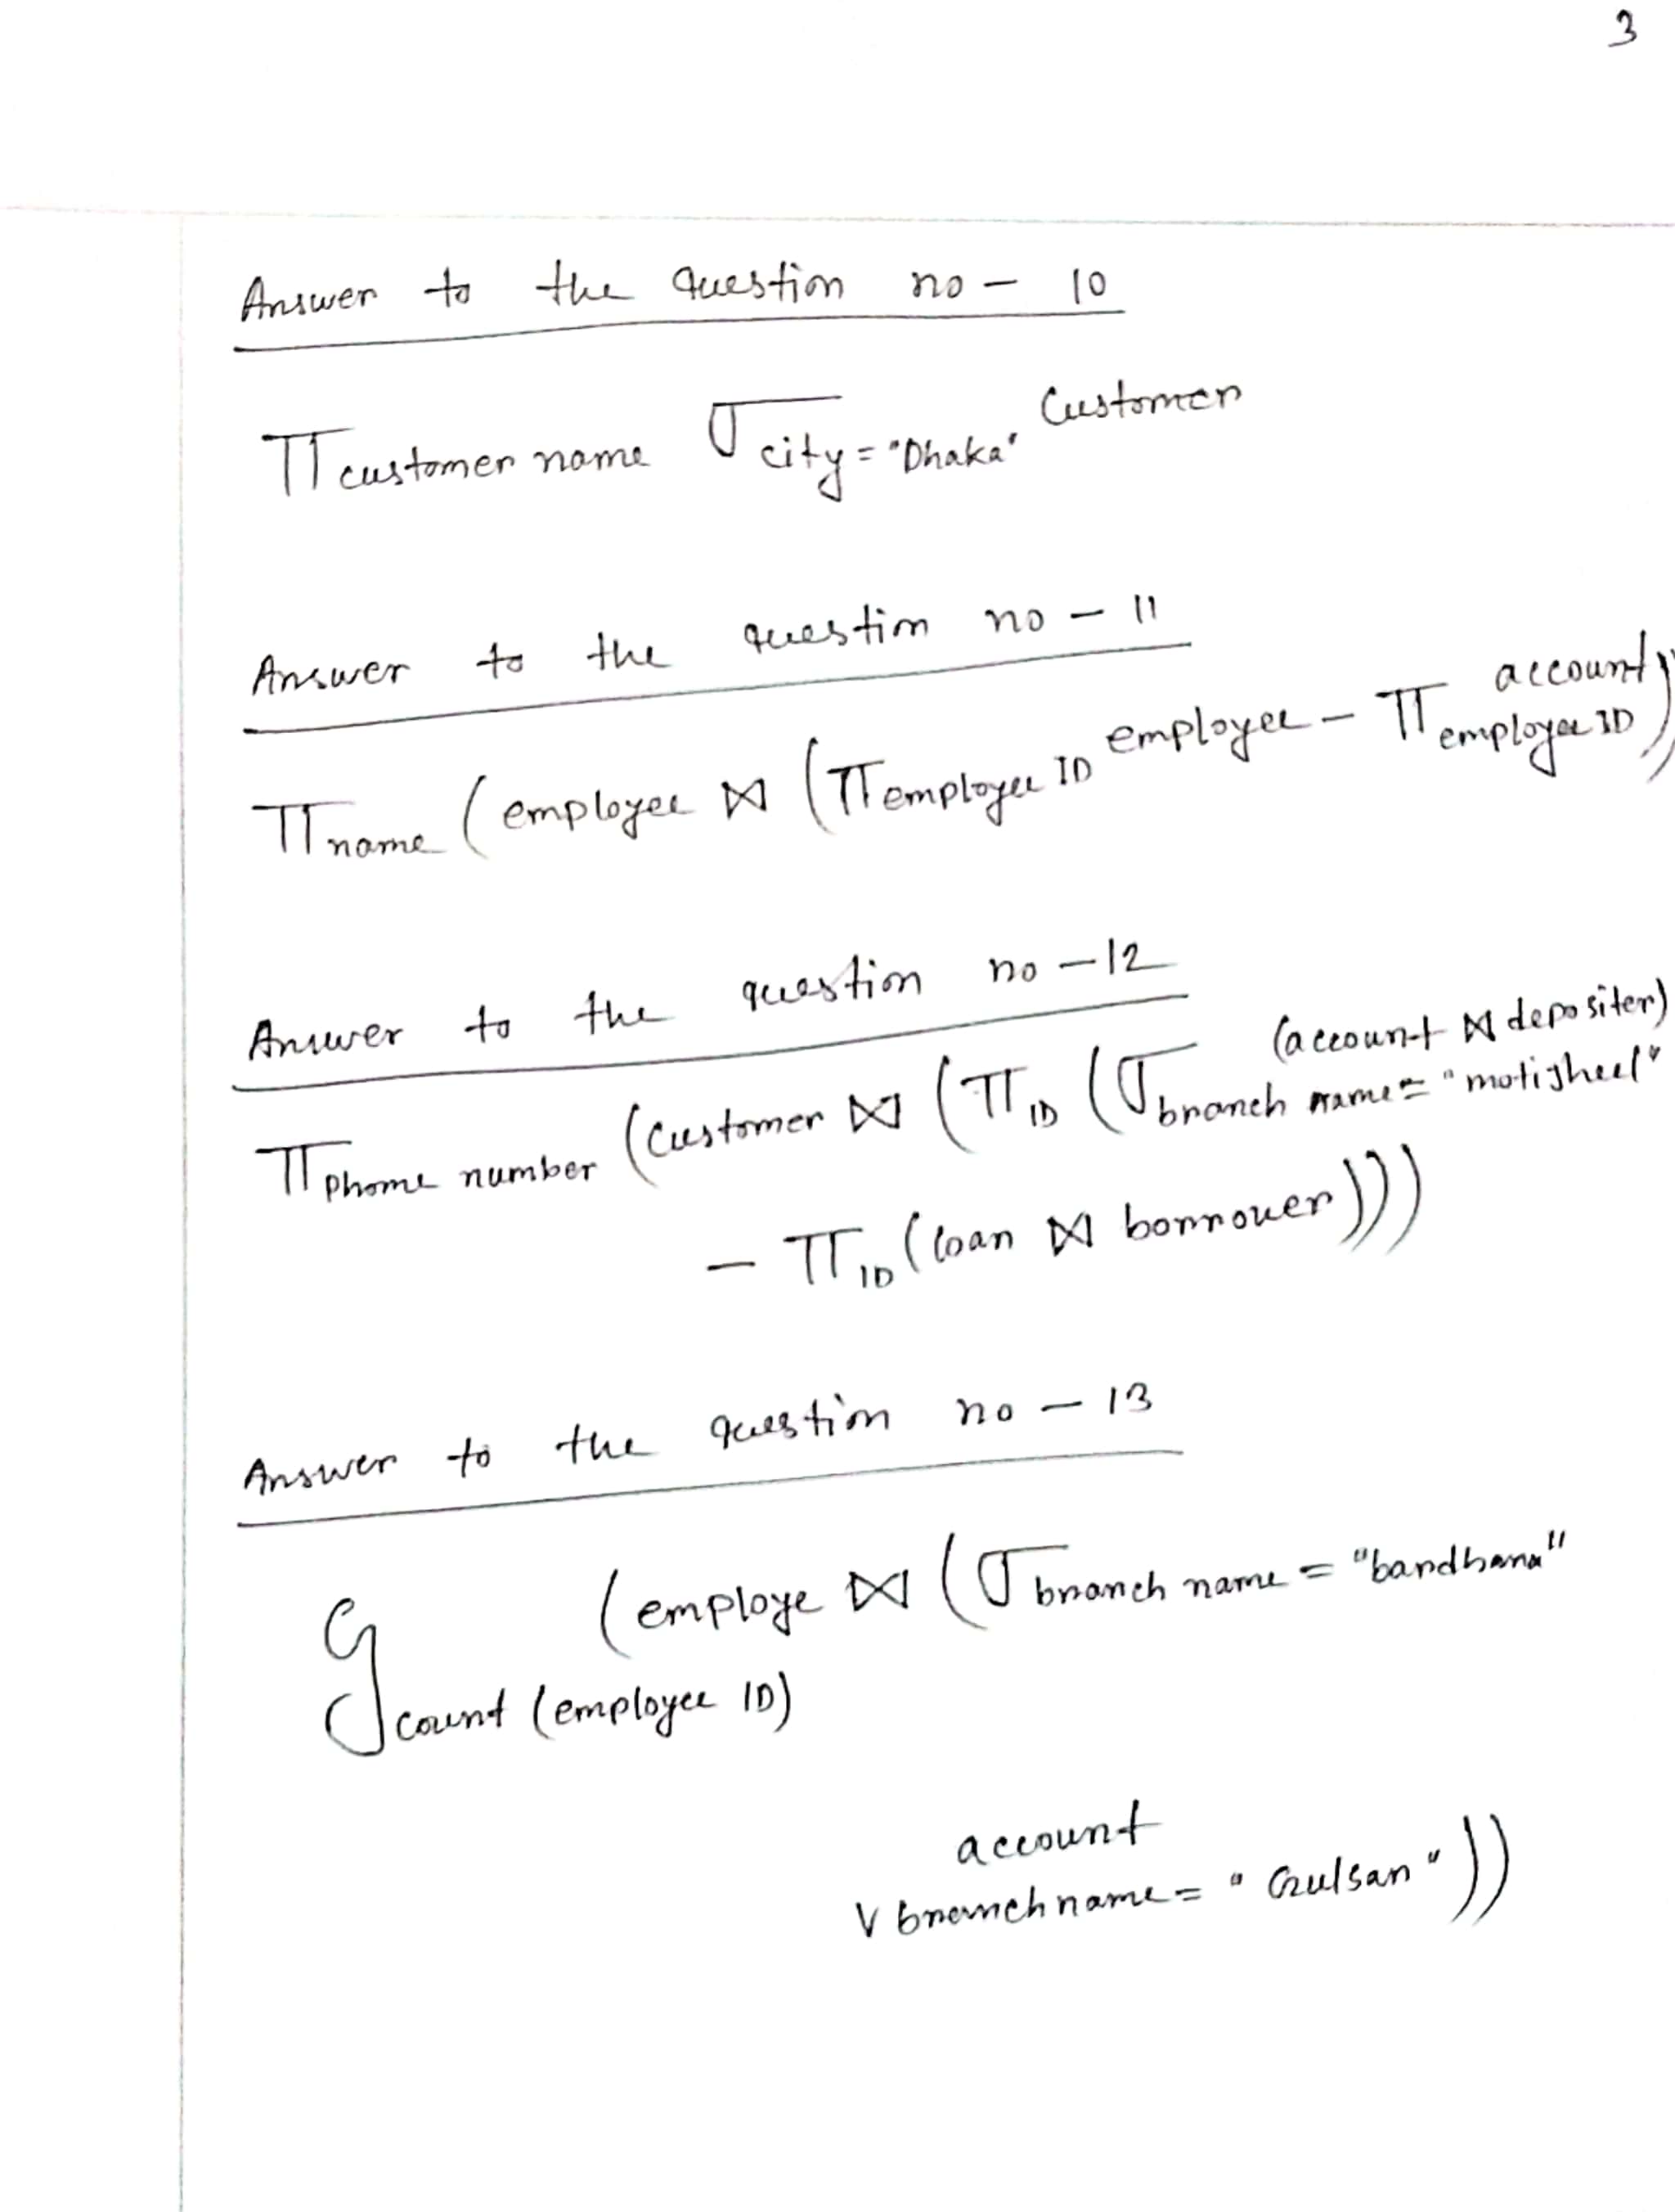 3
Answer to the Question no - 10
π customer name σ city = "Dhaka" Customer
Answer to the question no - 11
π name (employee ⋈ (π employee ID employee - π employee ID account))
Answer to the question no - 12
π phone number (Customer ⋈ (π ID (σ branch name = "motijheel" (account ⋈ depositer)
- π ID (loan ⋈ borrower)))
Answer to the question no - 13
G count (employee ID) (employe ⋈ (σ branch name = "bandhana"
account
∨ branch name = "Gulsan"))